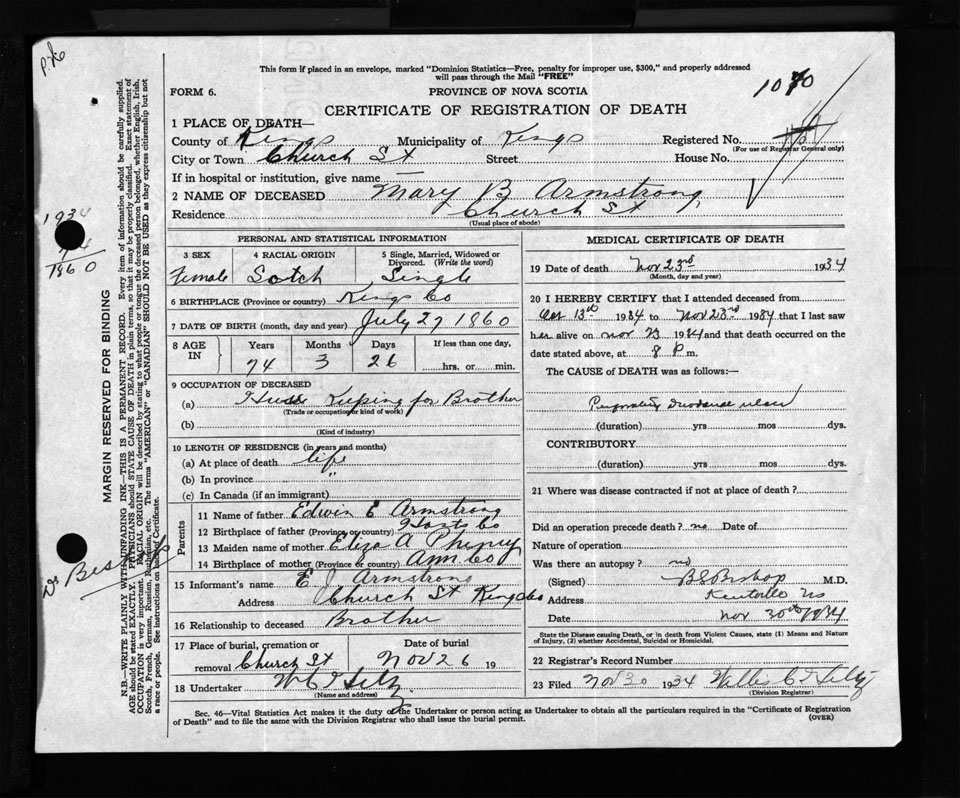 This form if placed in an envelope, marked "Dominion Statistics—Free, penalty for improper use, $300," and properly addressed
will pass through the Mail "FREE"
FORM 6.
PROVINCE OF NOVA SCOTIA
1070
CERTIFICATE OF REGISTRATION OF DEATH
1 PLACE OF DEATH—
County of Kings Municipality of Kings Registered No.
(For use of Registrar General only)
City or Town Church St Street House No.
If in hospital or institution, give name —
2 NAME OF DECEASED Mary B Armstrong
Residence Church St
(Usual place of abode)
PERSONAL AND STATISTICAL INFORMATION
3 SEX Female
4 RACIAL ORIGIN Scotch
5 Single, Married, Widowed or Divorced. (Write the word) Single
6 BIRTHPLACE (Province or country) Kings Co
7 DATE OF BIRTH (month, day and year) July 27 1860
8 AGE IN Years Months Days If less than one day,
74 3 26 hrs. or min.
9 OCCUPATION OF DECEASED
(a) House Keeping for Brother
(Trade or occupation or kind of work)
(b)
(Kind of industry)
10 LENGTH OF RESIDENCE (in years and months)
(a) At place of death life
(b) In province "
(c) In Canada (if an immigrant)
Parents
11 Name of father Edwin E Armstrong
12 Birthplace of father (Province or country) Hants Co
13 Maiden name of mother Eliza A Phinney
14 Birthplace of mother (Province or country) Ann Co
15 Informant's name E J Armstrong
Address Church St Kings Co
16 Relationship to deceased Brother
17 Place of burial, cremation or removal Church St
Date of burial Nov 26 19
18 Undertaker W C
(Name and address)
MEDICAL CERTIFICATE OF DEATH
19 Date of death Nov 23rd 1934
(Month, day and year)
20 I HEREBY CERTIFY that I attended deceased from
Oct 13th 1934 to Nov 23rd 1934 that I last saw
her alive on Nov 23 1934 and that death occurred on the
date stated above, at 8 P m.
The CAUSE of DEATH was as follows:—
duodenal ulcer
(duration) yrs mos dys.
CONTRIBUTORY
(duration) yrs mos dys.
21 Where was disease contracted if not at place of death?
Did an operation precede death? no Date of
Nature of operation
Was there an autopsy? no
(Signed) B S Bishop M.D.
Address Kentville NS
Date Nov 30th 1934
State the Disease causing Death, or in death from Violent Causes, state (1) Means and Nature
of Injury, (2) whether Accidental, Suicidal or Homicidal.
22 Registrar's Record Number
23 Filed Nov 30 1934 Willis C
(Division Registrar)
Sec. 46—Vital Statistics Act makes it the duty of the Undertaker or person acting as Undertaker to obtain all the particulars required in the "Certificate of Registration
of Death" and to file the same with the Division Registrar who shall issue the burial permit.
(OVER)
1934
74
1860
MARGIN RESERVED FOR BINDING
N.B.—WRITE PLAINLY WITH UNFADING INK—THIS IS A PERMANENT RECORD. Every item of information should be carefully supplied.
AGE should be stated EXACTLY. PHYSICIANS should STATE CAUSE OF DEATH in plain terms, so that it may be properly classified. Exact statement of
OCCUPATION is very important. RACIAL ORIGIN will be described by stating to what people or tongue the deceased person belonged, whether English, Irish,
Scotch, French, German, Russian, Ruthenian, etc. The terms "AMERICAN" or "CANADIAN" SHOULD NOT BE USED as they express citizenship but not
a race or people. See instructions on back of Certificate.